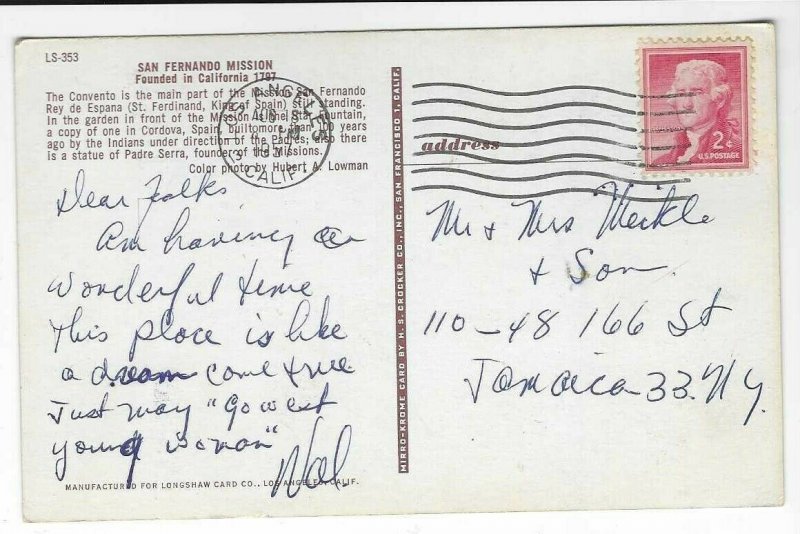 LS-353
SAN FERNANDO MISSION
Founded in California 1797
The Convento is the main part of the Mission San Fernando
Rey de Espana (St. Ferdinand, King of Spain) still standing.
In the garden in front of the Mission is the Star Fountain,
a copy of one in Cordova, Spain, built more than years
ago by the Indians under direction of the Padres; also there
is a statue of Padre Serra, founder of the Missions.
Color photo by Hubert A. Lowman
Dear Folks,
Am having a
wonderful time
This place is like
a dream come true
Just may "Go west
young woman"
MANUFACTURED FOR LONGSHAW CARD CO., LOS ANGELES, CALIF.
MIRRO-KROME CARD BY H. S. CROCKER CO., INC., SAN FRANCISCO 1, CALIF.
LOS ANGELES
AUG
CALIF.
2¢
U.S. POSTAGE
address
Mr & Mrs Meikle
& Son.
110-48 166 St
Jamaica 33. N.Y.